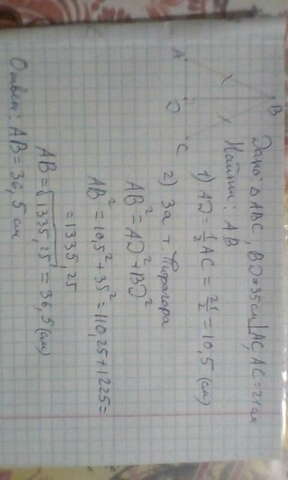 A
B
D
C
Дано: △ABC, BD=35см⊥AC, AC=21см
Найти: AB
1) AD=½AC = 21/2 = 10,5 (см)
2) За т. Пифагора
AB²=AD²+BD²
AB²=10,5²+35²=110,25+1225=
=1335,25
AB=√1335,25=36,5(см)
Ответ: AB=36,5 см